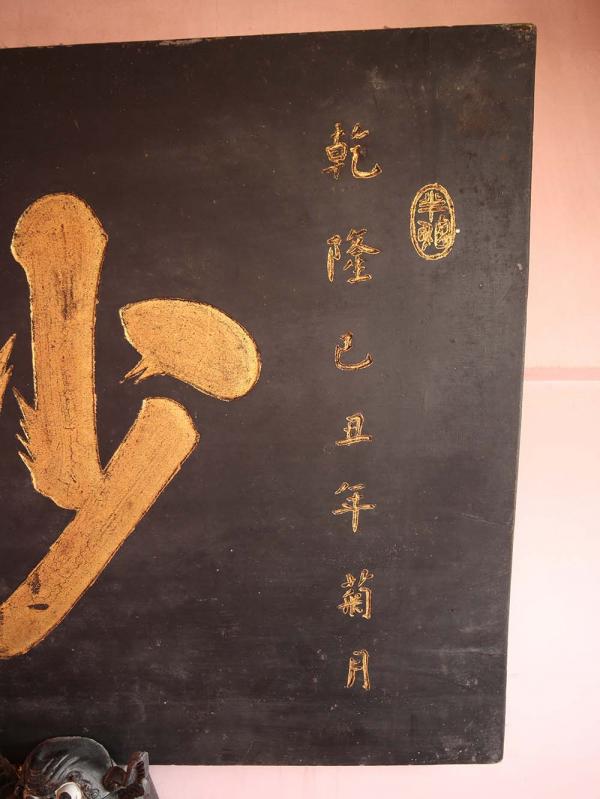 乾隆己丑年菊月